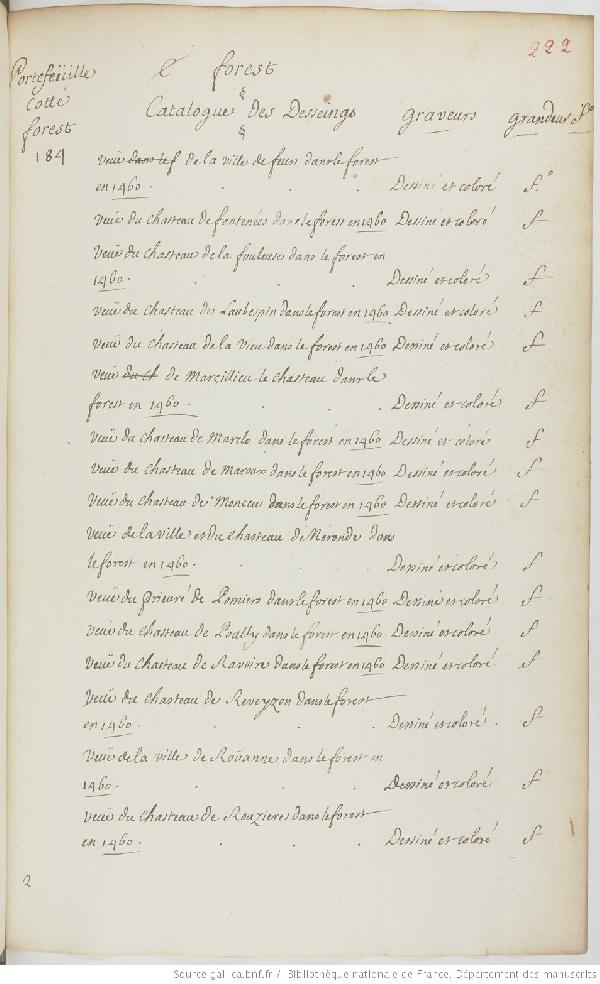 222
Portefeüille
Cotté
forest
184
forest
Catalogue des Desseings graveurs grandeur f.º
Veüe dans le f de la ville de feurs dans le forest
en 1460. Dessiné et coloré f.º
Veüe du Chasteau de fontenées dans le forest en 1460 Dessiné et coloré f
Veüe du Chasteau de la fouleuse dans le forest en
1460. Dessiné et coloré f
Veüe du Chasteau de Laubespin dans le forest en 1460 Dessiné et coloré f
Veüe du Chasteau de la Vieu dans le forest en 1460 Dessiné et coloré f
Veüe du Ch de Marcillieu le Chasteau dans le
forest en 1460. Dessiné et coloré f
Veüe du Chasteau de Marclo dans le forest en 1460 Dessiné et coloré f
Veüe du Chasteau de Maroux dans le forest en 1460 Dessiné et coloré f
Veüe du Chasteau de Monceu dans le forest en 1460 Dessiné et coloré f
Veüe de la ville et du Chasteau de Néronde dans
le forest en 1460. Dessiné et coloré f
Veüe du prieuré de Pomiers dans le forest en 1460 Dessiné et coloré f
Veüe du Chasteau de Poully dans le forest en 1460 Dessiné et coloré f
Veüe du Chasteau de Ravoire dans le forest en 1460 Dessiné et coloré f
Veüe du Chasteau de Reveyzon dans le forest
en 1460. Dessiné et coloré. f
Veüe de la ville de Roüanne dans le forest en
1460. Dessiné et coloré f
Veüe du Chasteau de Rouzieres dans le forest
en 1460. Dessiné et coloré f
2
Source gallica.bnf.fr / Bibliothèque nationale de France. Département des manuscrits